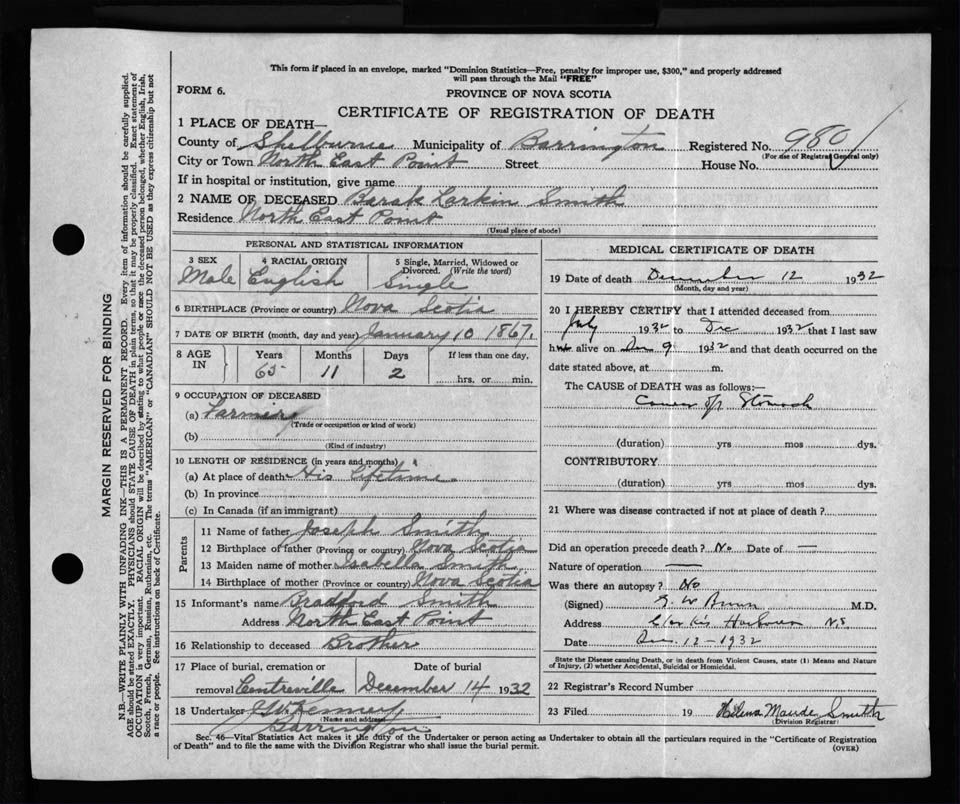 This form if placed in an envelope, marked "Dominion Statistics—Free, penalty for improper use, $300," and properly addressed
will pass through the Mail "FREE"
FORM 6.
PROVINCE OF NOVA SCOTIA
CERTIFICATE OF REGISTRATION OF DEATH
1 PLACE OF DEATH—
County of Shelburne Municipality of Barrington Registered No. 980
(For use of Registrar General only)
City or Town North East Point Street House No.
If in hospital or institution, give name
2 NAME OF DECEASED Barak Larkin Smith
Residence North East Point
(Usual place of abode)
PERSONAL AND STATISTICAL INFORMATION
3 SEX 4 RACIAL ORIGIN 5 Single, Married, Widowed or
Divorced. (Write the word)
Male English Single
6 BIRTHPLACE (Province or country) Nova Scotia
7 DATE OF BIRTH (month, day and year) January 10 1867.
8 AGE IN Years Months Days If less than one day,
65 11 2 hrs. or min.
9 OCCUPATION OF DECEASED
(a) Farming
(Trade or occupation or kind of work)
(b)
(Kind of industry)
10 LENGTH OF RESIDENCE (in years and months)
(a) At place of death His Lifetime
(b) In province
(c) In Canada (if an immigrant)
Parents
11 Name of father Joseph Smith
12 Birthplace of father (Province or country) Nova Scotia
13 Maiden name of mother Isabella Smith
14 Birthplace of mother (Province or country) Nova Scotia
15 Informant's name Bradford Smith
Address North East Point
16 Relationship to deceased Brother
17 Place of burial, cremation or Date of burial
removal Centreville December 14 1932
18 Undertaker J W Kenney
(Name and address)
Barrington
MEDICAL CERTIFICATE OF DEATH
19 Date of death December 12 1932
(Month, day and year)
20 I HEREBY CERTIFY that I attended deceased from
July 1932 to Dec 1932 that I last saw
him alive on Dec 9 1932 and that death occurred on the
date stated above, at m.
The CAUSE of DEATH was as follows:—
Cancer of Stomach
(duration) yrs mos dys.
CONTRIBUTORY
(duration) yrs mos dys.
21 Where was disease contracted if not at place of death?
Did an operation precede death? No Date of —
Nature of operation —
Was there an autopsy? No
(Signed) M.D.
Address Clarks Harbour N.S
Date Dec. 12 - 1932
State the Disease causing Death, or in death from Violent Causes, state (1) Means and Nature
of Injury, (2) whether Accidental, Suicidal or Homicidal.
22 Registrar's Record Number
23 Filed 19 Maude Smith
(Division Registrar)
Sec. 46—Vital Statistics Act makes it the duty of the Undertaker or person acting as Undertaker to obtain all the particulars required in the "Certificate of Registration
of Death" and to file the same with the Division Registrar who shall issue the burial permit.
(OVER)
MARGIN RESERVED FOR BINDING
N.B.—WRITE PLAINLY WITH UNFADING INK—THIS IS A PERMANENT RECORD. Every item of information should be carefully supplied.
AGE should be stated EXACTLY. PHYSICIANS should STATE CAUSE OF DEATH in plain terms, so that it may be properly classified. Exact statement of
OCCUPATION is very important. RACIAL ORIGIN will be described by stating to what people or race the deceased person belonged, whether English, Irish,
Scotch, French, German, Russian, Ruthenian, etc. The terms "AMERICAN" or "CANADIAN" SHOULD NOT BE USED as they express citizenship but not
a race or people. See instructions on back of Certificate.